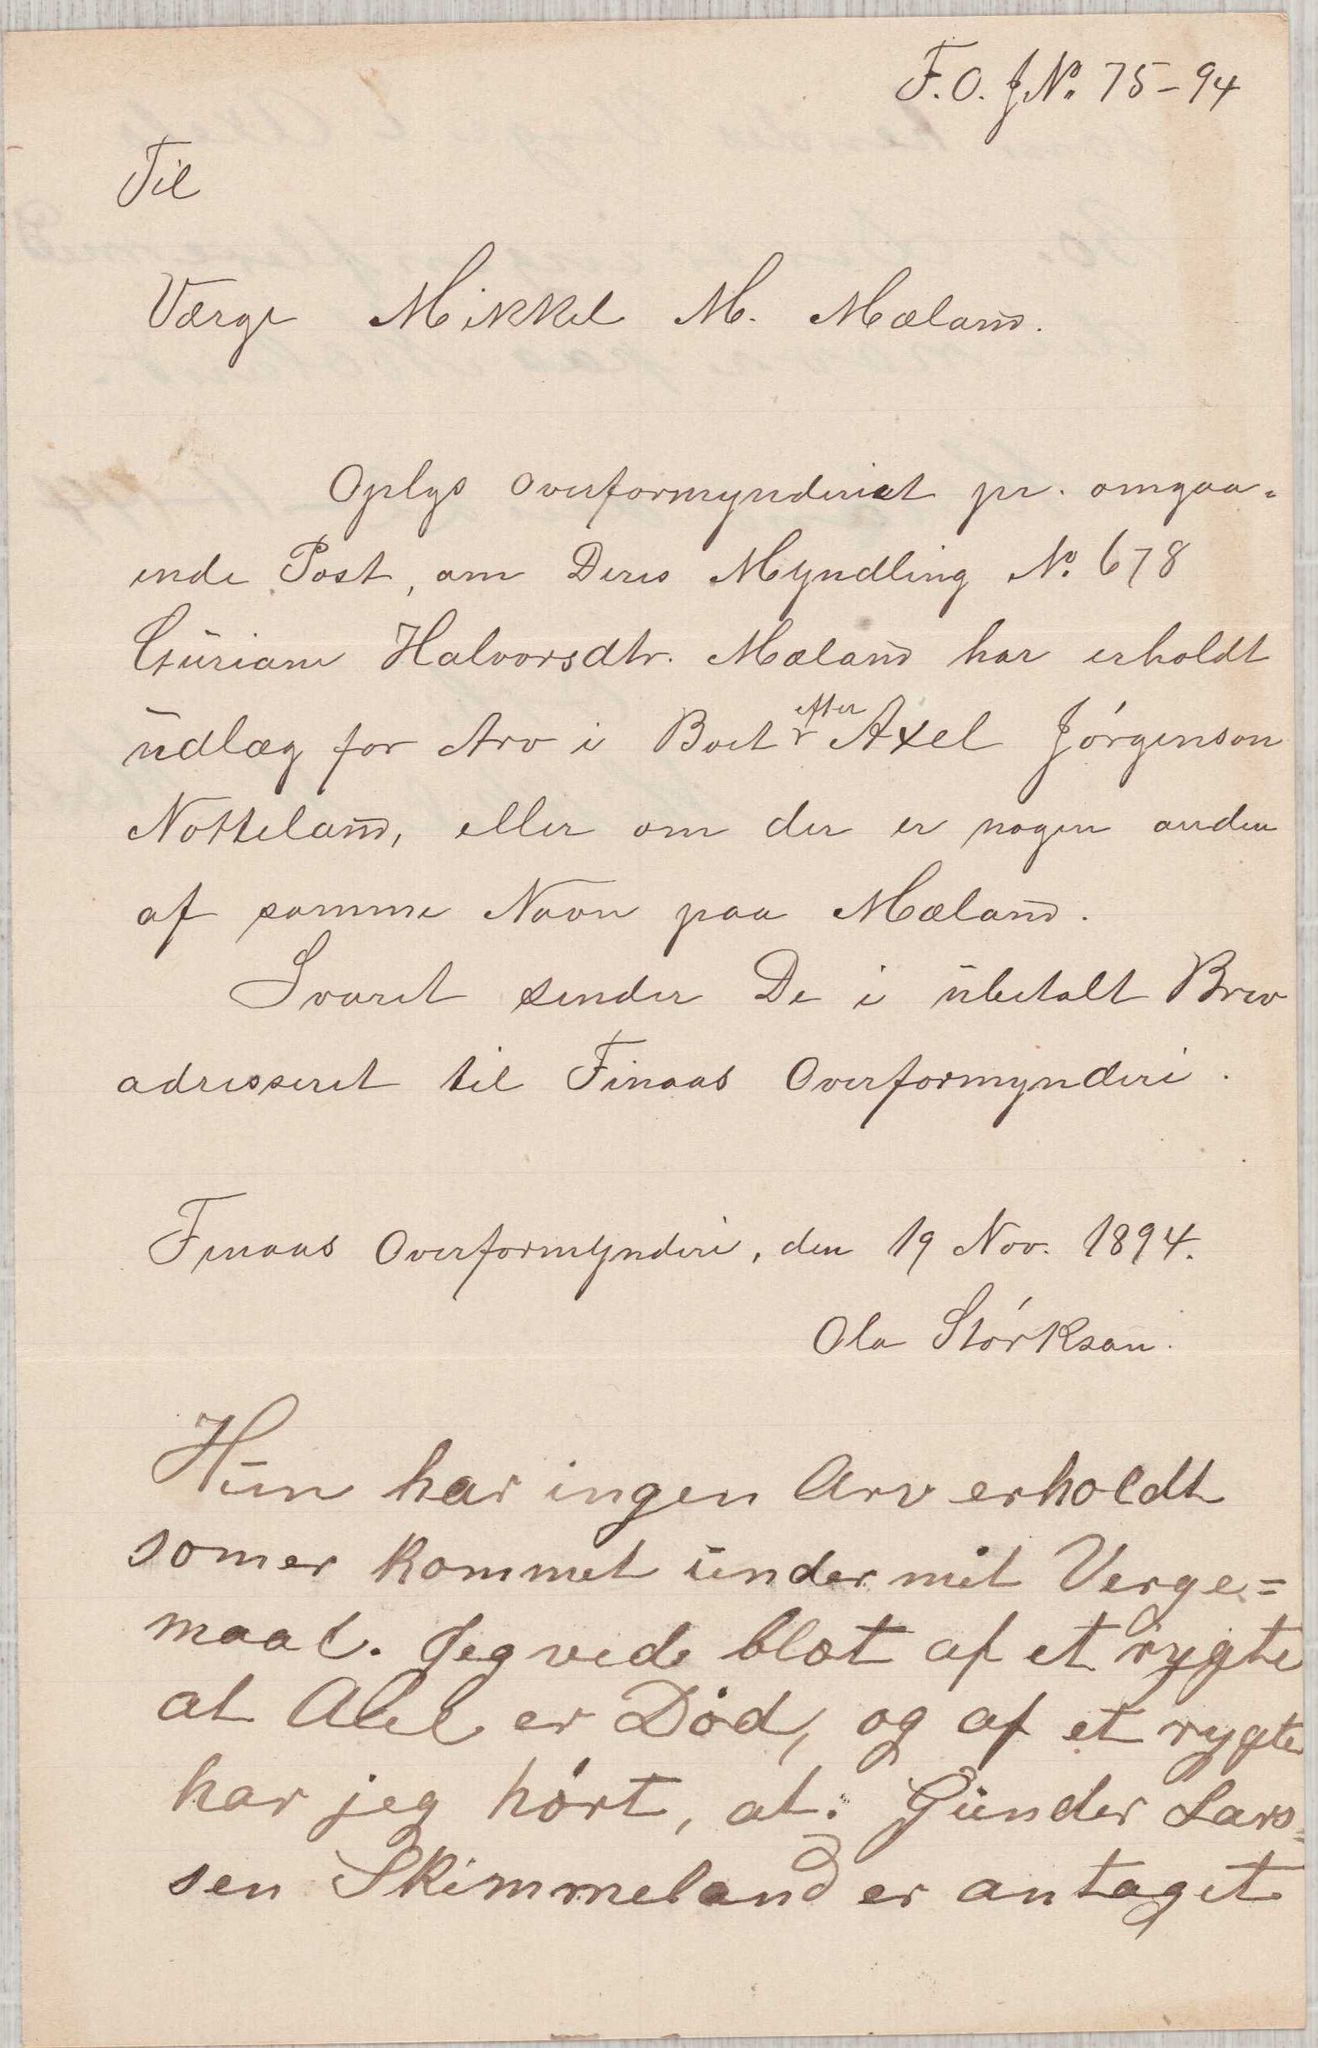 F. O. J№ 75-94
Til
Værge Mikkel M. Mæland.
Oplys Overformynderiet pr. omgaa-
ende Post, om Deres Myndling №. 678
Guriane Halvorsdtr. Mæland har erholdt
udlæg for Arv i Boet efter Axel Jórgenson
Notteland, eller om der er nogen anden
af samme Navn paa Mæland.
Svaret sender De i ubetalt Brev
adresseret til Finaas Overformynderi.
Finaas Overformynderi, den 19 Nov. 1894.
Ola Stórkson.
Hun har ingen Arv erholdt
som er kommet under mit Verge=
maal. Jeg vede blot af et rygte
at Axel er Død, og af et rygte
har jeg hört, at: Gunder Lars=
sen Skimmeland er antaget